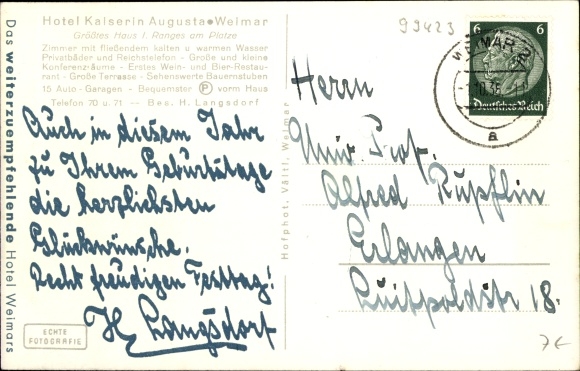 Das weiterzuempfehlende Hotel Weimars
Hotel Kaiserin Augusta • Weimar
Größtes Haus I. Ranges am Platze
Zimmer mit fließendem kalten u warmen Wasser
Privatbäder und Reichstelefon - Große und kleine
Konferenzräume - Erstes Wein- und Bier-Restau-
rant - Große Terrasse - Sehenswerte Bauernstuben
15 Auto-Garagen - Bequemster P vorm Haus
Telefon 70 u. 71 -- Bes. H. Langsdorf
Auch in diesem Jahr
zu Ihrem Geburtstage
die herzlichsten
Glückwünsche.
Recht freudigen Festtag!
H. Langsdorf
ECHTE
FOTOGRAFIE
Hofphot. Vältl, Weimar
99423
6 6
Deutsches Reich
WEIMAR
a
Herrn
Univ. Prof.
Alfred Rüpflin
Erlangen
Luitpoldstr 18.
7€